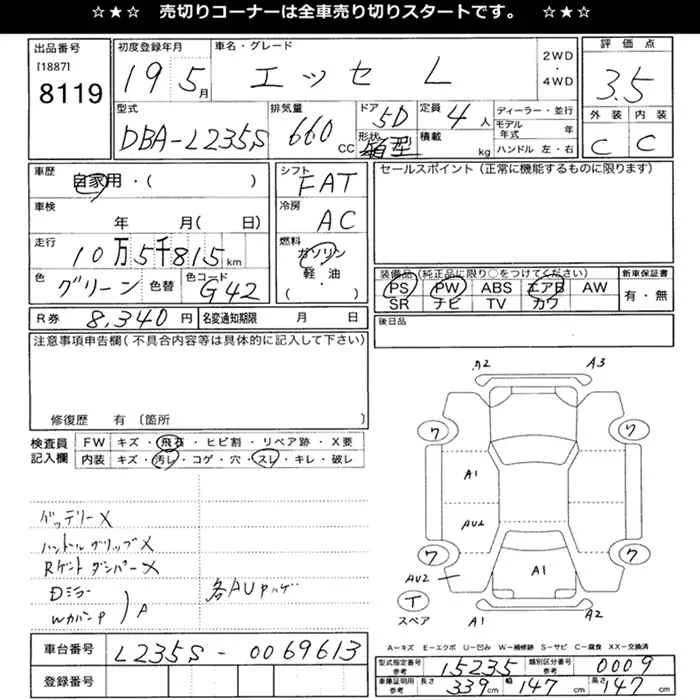 ☆★☆ 売切りコーナーは全車売り切りスタートです。 ☆★☆
出品番号
[1887]
8119
初度登録年月
19 5月
車名・グレード
エッセ L
2WD
・
4WD
評価点
3.5
外装 内装
C C
型式
DBA-L235S
排気量
660 CC
ドア
5D
形状
箱型
定員
4 人
積載
kg
ディーラー・並行
モデル年式 年
ハンドル 左・右
車歴
自家用・( )
車検
年 月( 日)
走行
10万5千815 km
色
グリーン
色替
色コード
G42
シフト
FAT
冷房
AC
燃料
ガソリン
軽油
( )
セールスポイント(正常に機能するものに限ります)
装備品(純正品に限り○をつけてください)
PS PW ABS エアB AW
SR ナビ TV カワ
新車保証書
有・無
R券 8,340 円 名変通知期限 月 日
後日品
注意事項申告欄(不具合内容等は具体的に記入して下さい)
修復歴 有〔箇所 〕
検査員
記入欄
FW キズ・飛石・ヒビ割・リペア跡・X要
内装 キズ・汚レ・コゲ・穴・スレ・キレ・破レ
バッテリーX
ハンドルグリップX
Rゲートダンパー X
Dミラー
WカバーP
A
各AUPハゲ
A2 A3
ワ ワ
A1
AU2
ワ ワ
AU2
A1
T
スペア
A1 A2
A-キズ E-エクボ U-凹み W-補修跡 S-サビ C-腐食 XX-交換済
車台番号
L235S-0069613
登録番号
型式指定番号 参考 15235 類別区分番号 参考 0009
車庫証明用 参考 長さ 339 cm 幅 147 cm 高さ 147 cm